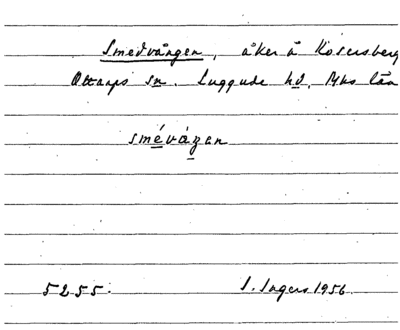 Smedvången, åker å Rosersberg
Ottarps sn. Luggude hd, Mhs län
smévágen
5255. I. Ingers 1956.